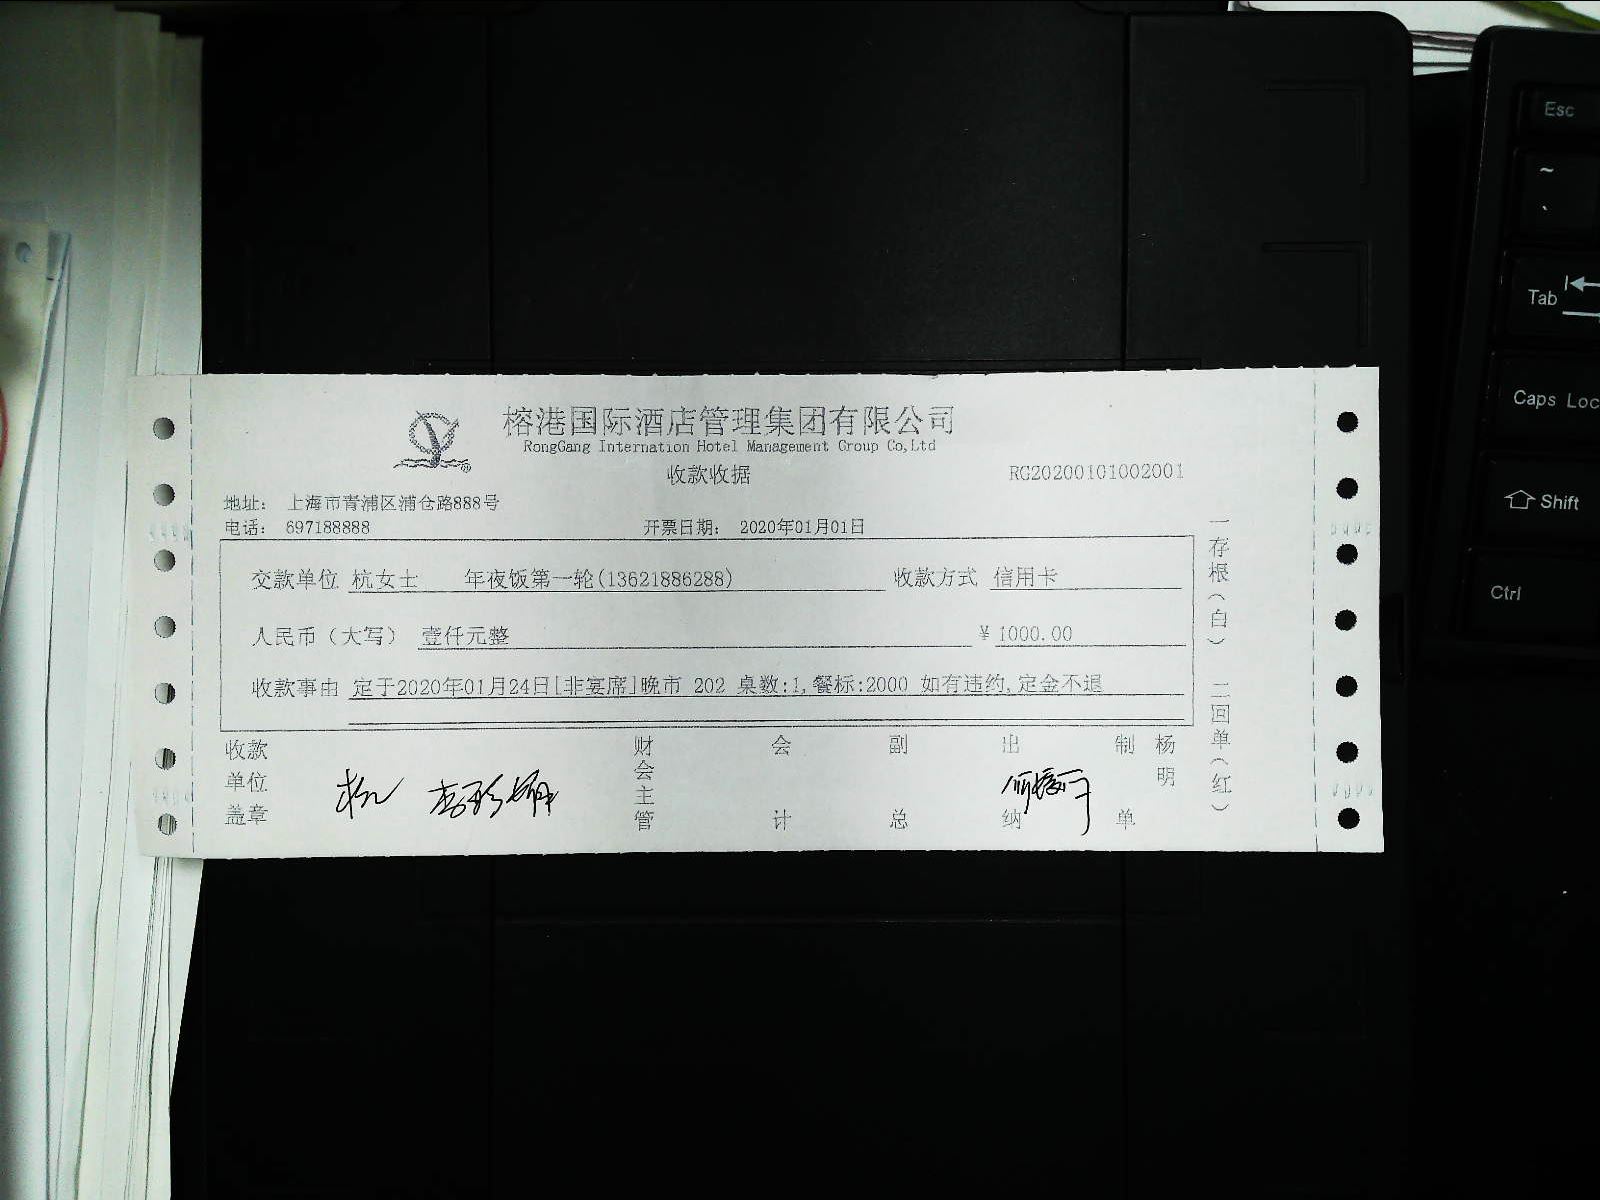 榕港国际酒店管理集团有限公司
RongGang Internation Hotel Management Group Co,Ltd
收款收据
RG20200101002001
地址： 上海市青浦区浦仓路888号
电话： 697188888
开票日期： 2020年01月01日
交款单位 杭女士 年夜饭第一轮(13621886288) 收款方式 信用卡
人民币（大写） 壹仟元整 ¥ 1000.00
收款事由 定于2020年01月24日[非宴席]晚市 202 桌数:1,餐标:2000 如有违约,定金不退
收款单位盖章
财会主管
会计
副总
出纳
制单
杨明
一存根（白） 二回单（红）
Esc
~
`
Tab
Caps Loc
Shift
Ctrl